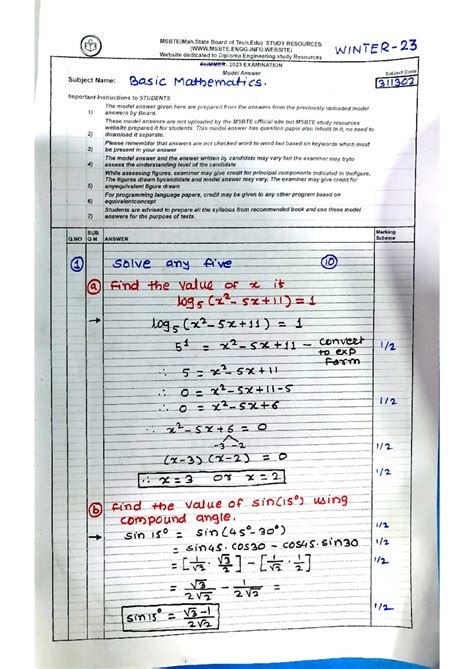 MSBTE(Mah.State Board of Tech.Edu) STUDY RESOURCES
(WWW.MSBTE.ENGG-INFO.WEBSITE)
Website dedicated to Diploma Engineering study Resources
WINTER-23
SUMMER- 2023 EXAMINATION
Model Answer
Subject Code
Subject Name: Basic Mathematics.
311302
Important Instructions to STUDENTS
The model answer given here are prepared from the answers from the previously uploaded model
1) answers by Board.
These model answers are not uploaded by the MSBTE official site but MSBTE study resources
website prepared it for students. This model answer has question paper also inbuilt in it, no need to
2) download it separate.
Please remember that answers are not checked word to word but based on keywords which must
3) be present in your answer
The model answer and the answer written by candidate may vary but the examiner may try to
4) assess the understanding level of the candidate
While assessing figures, examiner may give credit for principal components indicated in the figure.
The figures drawn by candidate and model answer may vary. The examiner may give credit for
5) any equivalent figure drawn
For programming language papers, credit may be given to any other program based on
6) equivalent concept
Students are advised to prepare all the syllabus from recommended book and use these model
7) answers for the purpose of tests.
Q.NO SUB Q N ANSWER Marking Scheme
① Solve any five ⑩
ⓐ Find the value of x if
log₅(x²-5x+11)=1
→ log₅(x²-5x+11) = 1
5¹ = x²-5x+11 - convert to exp form 1/2
∴ 5 = x²-5x+11
∴ 0 = x²-5x+11-5
∴ 0 = x²-5x+6 1/2
∴ x²-5x+6 = 0
-3 -2
(x-3)(x-2) = 0 1/2
∴ x=3 or x=2 1/2
ⓑ Find the value of sin(15°) using
compound angle.
→ sin 15° = sin(45°-30°) 1/2
= sin45.cos30 - cos45.sin30 1/2
= [1/√2 · √3/2] - [1/√2 · 1/2] 1/2
= √3/2√2 - 1/2√2 =
sin15° = √3-1/2√2 1/2